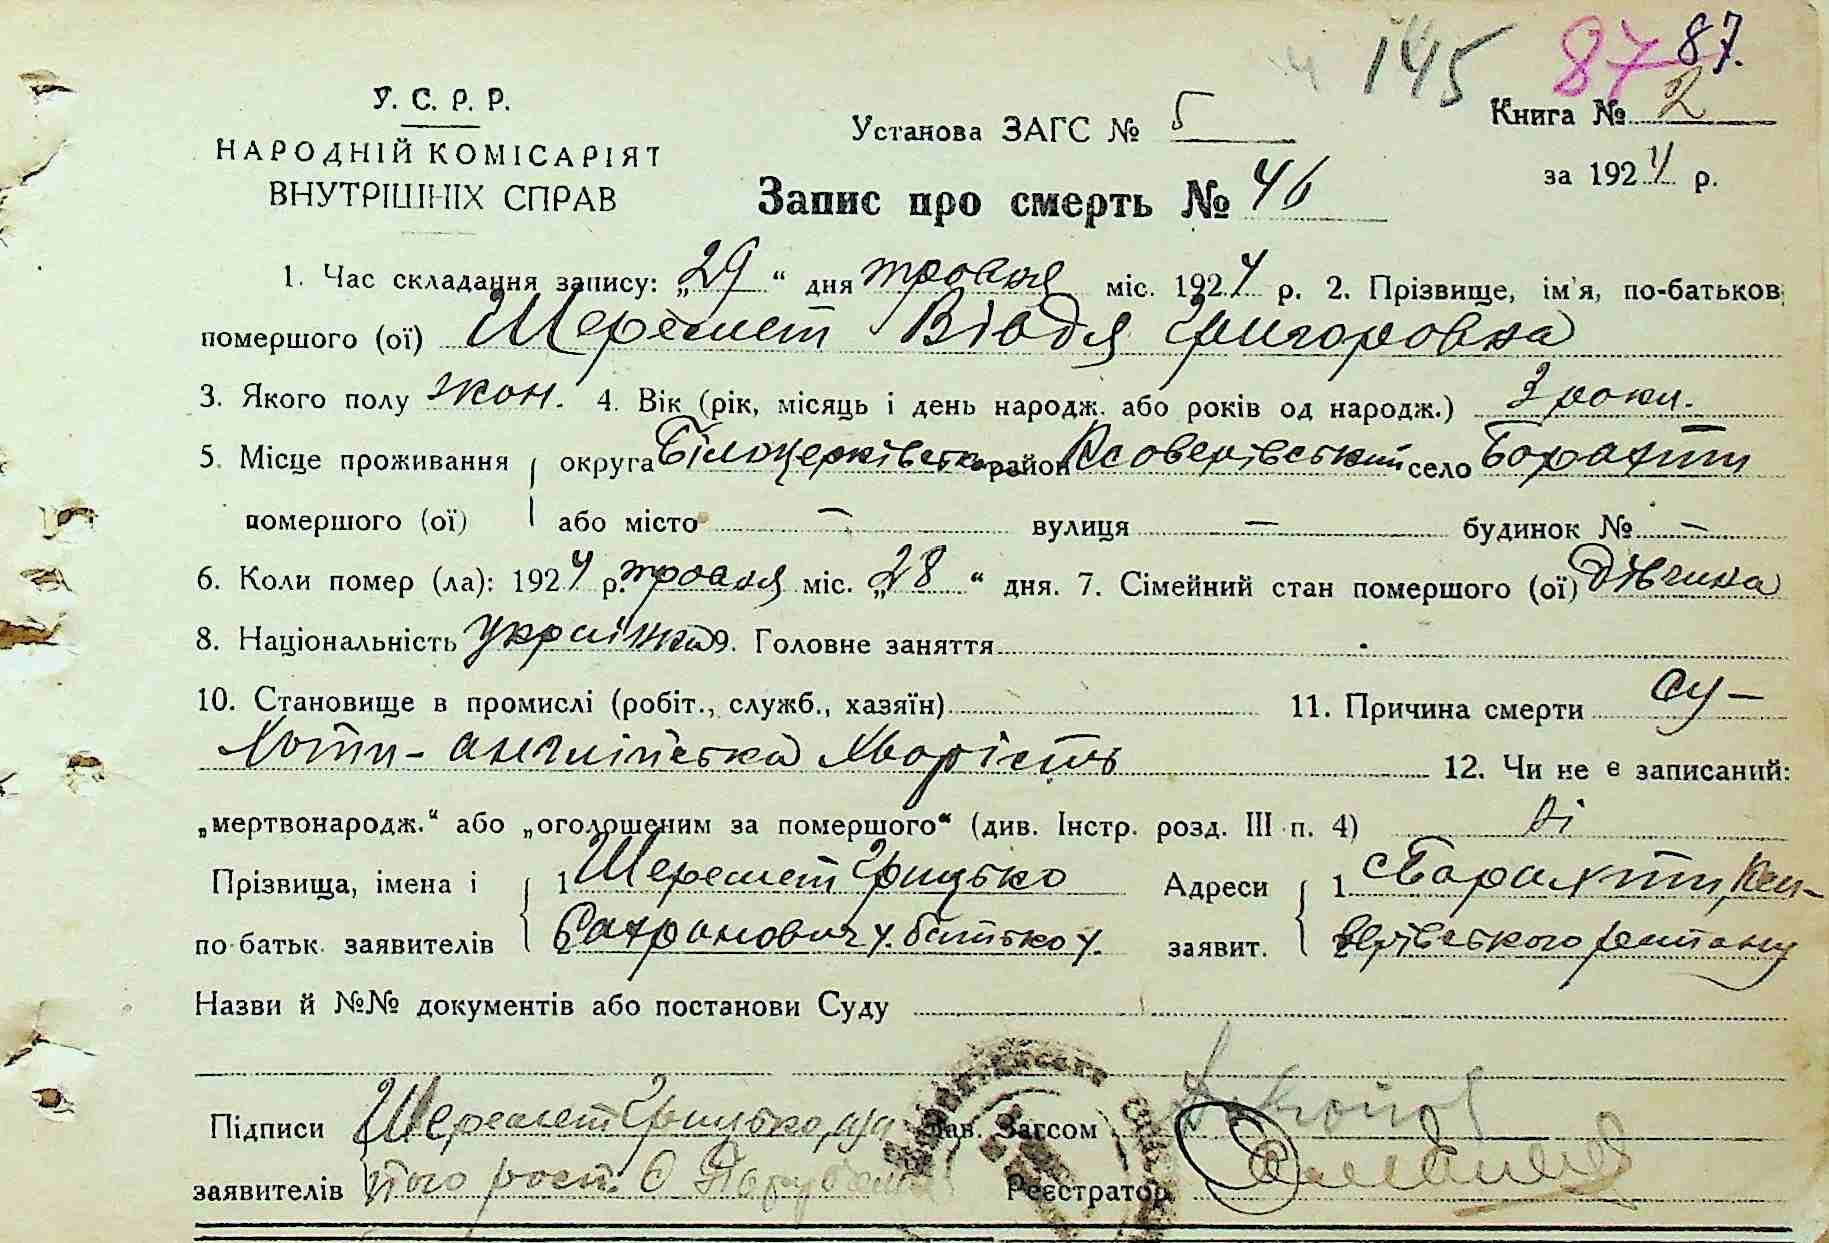 145 87 87.
У. С. Р. Р.
НАРОДНІЙ КОМІСАРІЯТ
ВНУТРІШНІХ СПРАВ
Установа ЗАГС № 5
Книга № 2
за 1924 р.
Запис про смерть № 46
1. Час складання запису: „29“ дня травня міс. 1924 р. 2. Прізвище, ім'я, по-батьков.
помершого (ої) Шеремет Вівдя Григоровна
3. Якого полу жон. 4. Вік (рік, місяць і день народж. або років од народж.) 3 роки.
5. Місце проживання округа Білоцерківська район Ксаверівський село Борахти
помершого (ої) або місто — вулиця — будинок № —
6. Коли помер (ла): 1924 р. травня міс. „28“ дня. 7. Сімейний стан помершого (ої) дівчина
8. Національність українка 9. Головне заняття
10. Становище в промислі (робіт., служб., хазяїн) 11. Причина смерти су-
хоти - англійська хворість 12. Чи не є записаний:
„мертвонародж.“ або „оголошеним за помершого“ (див. Інстр. розд. III п. 4) ні
Прізвища, імена і 1 Шеремет Грицько Адреси 1 с Барахти, Кса-
по батьк. заявителів 2 батько заявит. 2 верівського району
Назви й №№ документів або постанови Суду
Підписи Шеремет Грицько, Зав. Загсом
заявителів Реєстратор